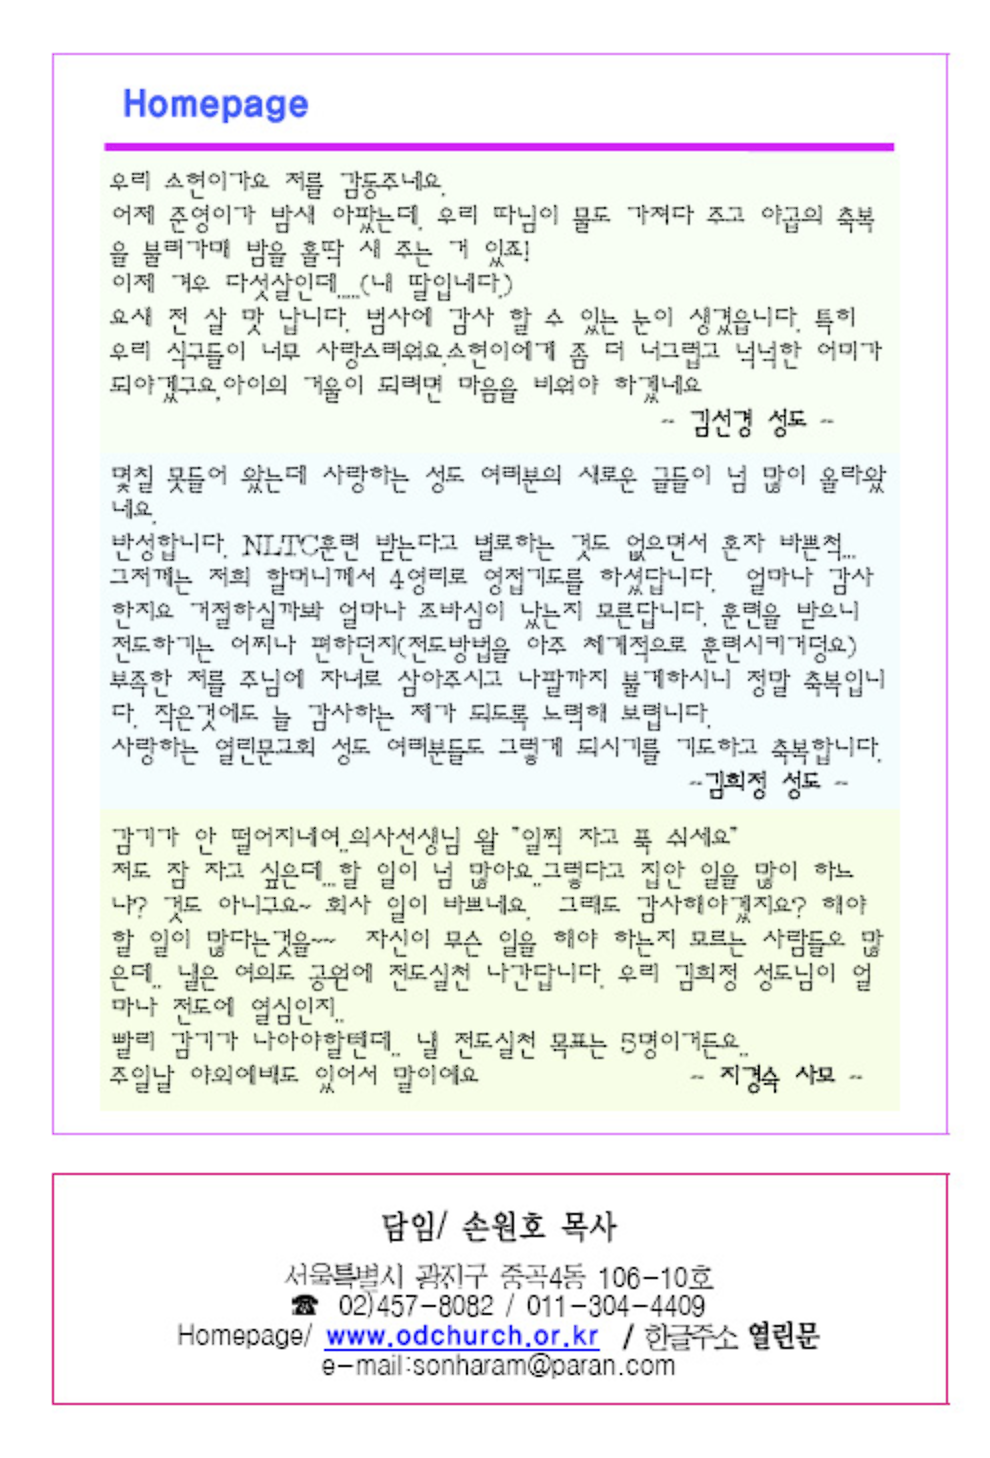 Homepage
우리 소헌이가요 저를 감동주네요.
어제 준영이가 밤새 아팠는데, 우리 따님이 물도 가져다 주고 야곱의 축복
을 불러가매 밤을 홀딱 새 주는 거 있죠!
이제 겨우 다섯살인데.....(내 딸입네다.)
요새 전 살 맛 납니다. 범사에 감사 할 수 있는 눈이 생겼읍니다. 특히
우리 식구들이 너무 사랑스러워요.소헌이에게 좀 더 너그럽고 넉넉한 어미가
되야겠구요,아이의 거울이 되려면 마음을 비워야 하겠네요
~ 김선경 성도 ~
몇칠 못들어 왔는데 사랑하는 성도 여러분의 새로운 글들이 넘 많이 올라왔
네요.
반성합니다. NLTC훈련 받는다고 별로하는 것도 없으면서 혼자 바쁜척...
그저께는 저희 할머니께서 4영리로 영접기도를 하셨답니다. 얼마나 감사
한지요 거절하실까봐 얼마나 조바심이 났는지 모른답니다. 훈련을 받으니
전도하기는 어찌나 편하던지(전도방법을 아주 체계적으로 훈련시키거덩요)
부족한 저를 주님에 자녀로 삼아주시고 나팔까지 불게하시니 정말 축복입니
다. 작은것에도 늘 감사하는 제가 되도록 노력해 보렵니다.
사랑하는 열린문교회 성도 여러분들도 그렇게 되시기를 기도하고 축복합니다.
~김희정 성도 ~
감기가 안 떨어지네여..의사선생님 왈 "일찍 자고 푹 쉬세요"
저도 잠 자고 싶은데...할 일이 넘 많아요..그렇다고 집안 일을 많이 하느
냐? 것도 아니구요~ 회사 일이 바쁘네요. 그래도 감사해야겠지요? 해야
할 일이 많다는것을~~ 자신이 무슨 일을 해야 하는지 모르는 사람들오 많
은데.. 낼은 여의도 공원에 전도실천 나간답니다. 우리 김희정 성도님이 얼
마나 전도에 열심인지..
빨리 감기가 나아야할텐데.. 낼 전도실천 목표는 5명이거든요..
주일날 야외예배도 있어서 말이예요 ~ 지경숙 사모 ~
담임/ 손원호 목사
서울특별시 광진구 중곡4동 106-10호
☎ 02)457-8082 / 011-304-4409
Homepage/ www.odchurch.or.kr / 한글주소 열린문
e-mail:sonharam@paran.com